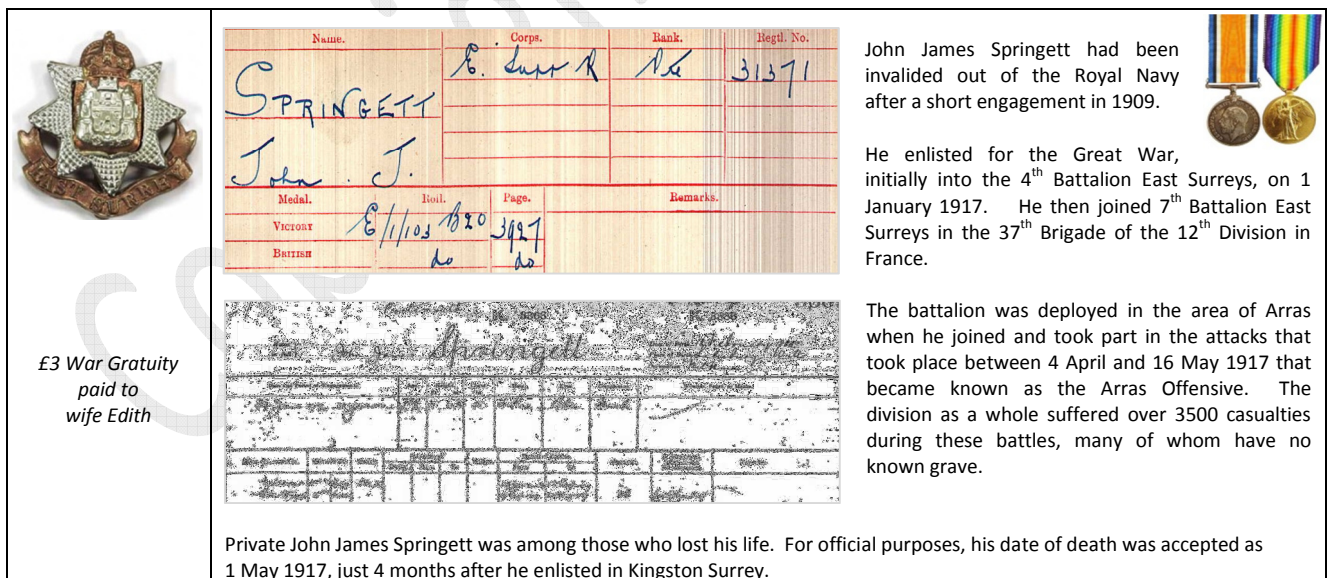 EAST SURREY
£3 War Gratuity
paid to
wife Edith
Name. Corps. Rank. Regtl. No.
SPRINGETT E. Surr R Pte 31371
John . J.
Medal. Roll. Page. Remarks.
VICTORY E/1/103 B20 3927
BRITISH do do
Springett
John James Springett had been
invalided out of the Royal Navy
after a short engagement in 1909.
He enlisted for the Great War,
initially into the 4th Battalion East Surreys, on 1
January 1917. He then joined 7th Battalion East
Surreys in the 37th Brigade of the 12th Division in
France.
The battalion was deployed in the area of Arras
when he joined and took part in the attacks that
took place between 4 April and 16 May 1917 that
became known as the Arras Offensive. The
division as a whole suffered over 3500 casualties
during these battles, many of whom have no
known grave.
Private John James Springett was among those who lost his life. For official purposes, his date of death was accepted as
1 May 1917, just 4 months after he enlisted in Kingston Surrey.